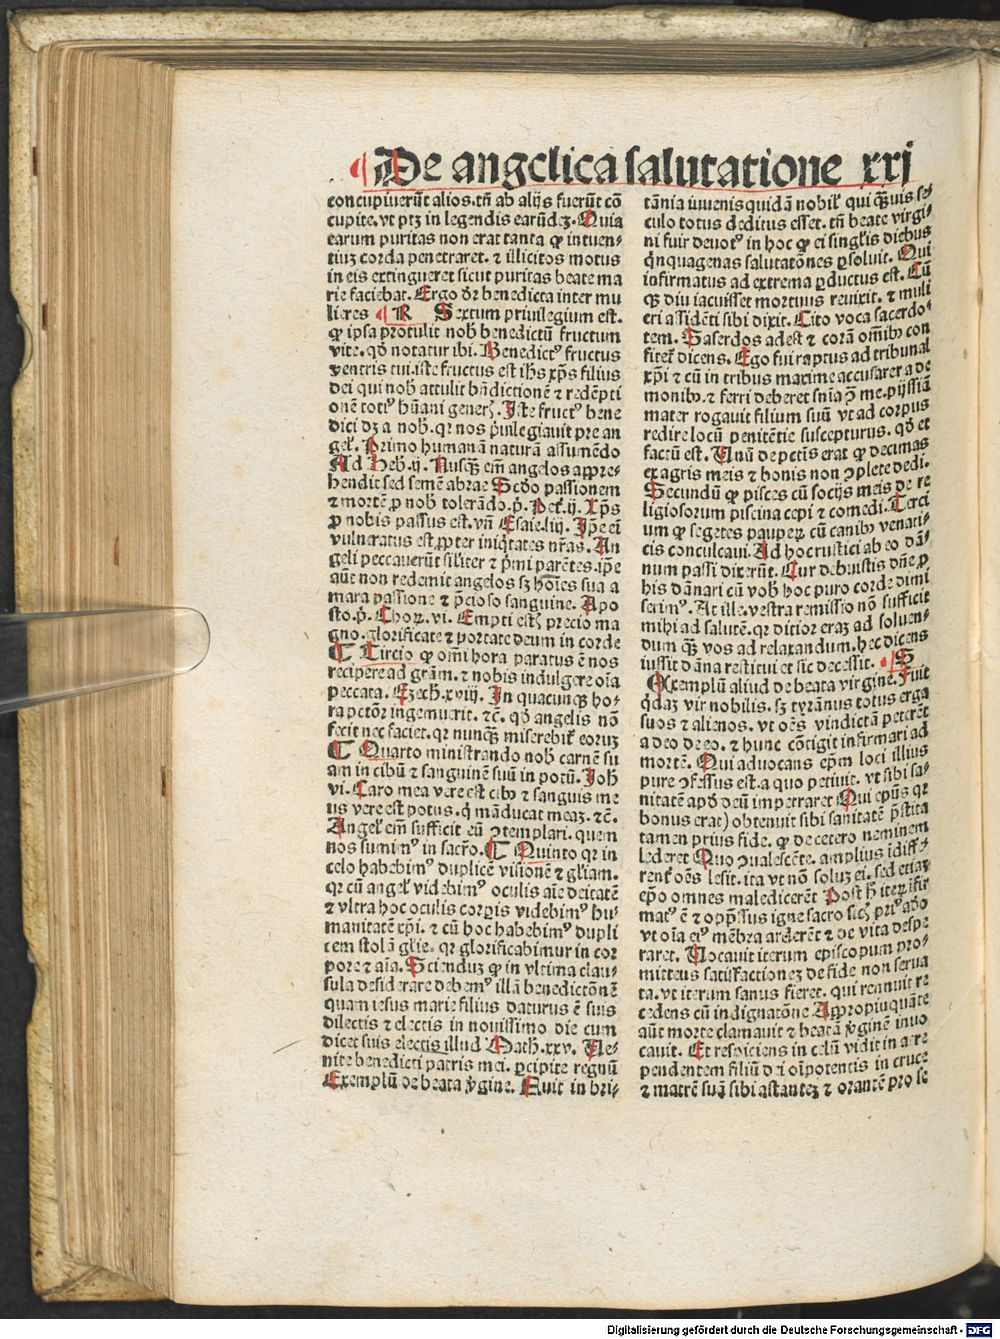 De angelica salutatione xxj
concupiuerūt alios. tñ ab alijs fuerūt cō
cupite. vt ptȝ in legendis earūdeȝ. Quia
earum puritas non erat tanta ꝙ intuen-
tiuȝ corda penetraret. ⁊ illicitos motus
in eis extingueret sicut puritas beate ma
rie faciebat. Ergo dr̄ benedicta inter mu
lieres R Sextum priuilegium est.
ꝙ ipsa protulit nob̄ benedictū fructum
vite. qd̄ notatur ibi. Benedictꝰ fructus
ventris tui. iste fructus est ihs xp̄s filius
dei qui nob̄ attulit bn̄dictionē ⁊ redēpti
onē totiꝰ hūani generꝭ. Iste fructꝰ bene
dici dȝ a nob̄. qr nos p̄uilegiauit pre an
gel̓. Primo humanā naturā assumēdo
Ad Heb̄. ij. Nusq̄ȝ em̄ angelos appre-
hendit sed semē abrae Scd̄o passionem
⁊ mortē ꝓ nob̄ tolerādo. p̄. Pet̓. ij. Xp̄s
ꝓ nobis passus est. vn̄ Esaie. liij. Ip̄e em̄
vulneratus est ꝓpter iniq̄tates nr̄as. An
geli peccauerūt sil̓iter ⁊ p̄mi parētes. ip̄e
aūt non redemit angelos sȝ hoīes sua a
mara passione ⁊ p̄cioso sanguine. Apo
sto. p̄. Choꝝ. vi. Empti estꝭ precio ma
gno. glorificate ⁊ portate deum in corde
Tircio ꝙ om̄i hora paratus ē nos
recipere ad grām. ⁊ nobis indulgere oīa
peccata. Ezech̄. xviij. In quacunq̄ȝ ho-
ra pctōr ingemuerit. ⁊c̄. qd̄ angelis nō
fecit nec faciet. qr nunq̄ȝ miserebit̓ eoruȝ
Quarto ministrando nob̄ carnē su
am in cibū ⁊ sanguinē suū in potū. Joh̄
vi. Caro mea vere est cibꝰ ⁊ sanguis me
us vere est potus. q̄ māducat meaȝ. ⁊c̄.
Angel̓ em̄ sufficit eū ꝯtemplari. quem
nos sumimꝰ in sacr̄o. Quinto qr in
celo habebimꝰ duplicē visionē ⁊ gl̓iam.
qr cū angel̓ videbimꝰ oculis aīe deitatē
⁊ vltra hoc oculis corpis videbimꝰ hu-
manitatē xp̄i. ⁊ cū hoc habebimꝰ dupli
cem stolā gl̓ie. qr glorificabimur in cor
pore ⁊ aīa. Scienduȝ ꝙ in vltima clau-
sula desiderare debemꝰ illā benedictōnē
quam iesus marie filius daturus ē suis
dilectis ⁊ electis in nouissimo die cum
dicet suis electis illud Math̄. xxv. Ve-
nite benedicti patris mei. ꝑcipite regnū
Exemplū de beata v̓gine. Fuit in bri-
tānia iuuenis quidā nobil̓ qui q̄ȝuis se-
culo totus deditus esset. tn̄ beate virgi-
ni fuit deuotꝰ in hoc ꝙ ei singl̓is diebus
q̄nquagenas salutatōnes ꝑsoluit. Qui
infirmatus ad extrema ꝑductus est. Cū
q̄ȝ diu iacuisset mortuus reuixit. ⁊ muli
eri assidēti sibi dixit. Cito voca sacerdo-
tem. Saserdos adest ⁊ corā om̄ibꝰ con
fitet̓ dicens. Ego fui raptus ad tribunal
xp̄i ⁊ cū in tribus maxime accusarer a de
monibꝰ. ⁊ ferri deberet sn̄ia ꝯ̄ me. pijssiā
mater rogauit filium suū vt ad corpus
redire locū penitētie suscepturus. qd̄ et
factū est. Vnū de petis erat ꝙ decimas
ex agris meis ⁊ bonis non ꝯplete dedi.
Secundū ꝙ pisces cū socijs meis de re
ligiosorum piscina cepi ⁊ comedi. Terci
um ꝙ segetes pauperꝝ cū canibꝰ venati-
cis conculcaui. Ad hoc rustici ab eo dā-
num passi dixerūt. Cur debuistis dn̄e ꝓ
his dānari cū vob̄ hoc puro corde dimi
serimꝰ. At ille. vestra remissio nō sufficit
mihi ad salutē. qr ditior eraȝ ad soluen-
dum q̄ȝ vos ad relaxandum. hec dicens
iussit dāna restitui et sic decessit. S
Exemplū aliud de beata virgine. Fuit
q̄daȝ vir nobilis. sȝ tyrānus totus erga
suos ⁊ alienos. vt oēs vindictā peterēt
a deo de eo. ⁊ hunc cōtigit infirmari ad
mortē. Qui aduocans ep̄m loci illius
pure ꝯfessus est. a quo petiuit. vt sibi sa-
nitatē apd̄ deū impetraret Qui ep̄us qr
bonus erat) obtenuit sibi sanitatē p̄stita
tamen prius fide. ꝙ de cetero neminem
lederet Quo ꝯualescēte. amplius īdiffe-
rent̓ oēs lesit. ita vt nō soluȝ ei. sed etiaȝ
ep̄o omnes maledicerēt Post h̄ iteꝝ īfir
matꝰ ē ⁊ opp̄ssus igne sacro sicꝭ priꝰ adō
vt oīa eiꝰ mēbra arderēt ⁊ de vita despe
raret. Vocauit iterum episcopum pro-
mittens satisfactioneȝ de fide non serua
ta. vt iterum sanus fieret. qui rennuit re
cedens cū indignatōne Appropiuquāte
aūt morte clamauit ⁊ beatā v̓ginē inuo
cauit. Et respiciens in celū vidit in aere
pendentem filiū dei oīpotentis in cruce
⁊ matrē suā sibi astanteȝ ⁊ orantē pro se
Digitalisierung gefördert durch die Deutsche Forschungsgemeinschaft - DFG